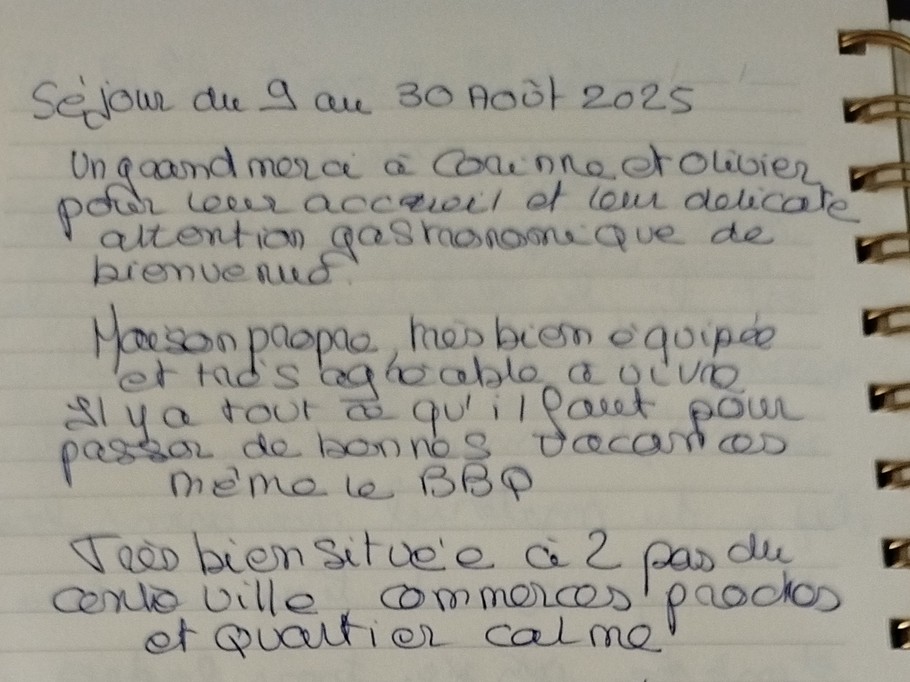 Séjour du 9 au 30 Août 2025
Un grand merci à Corinne et Olivier
pour leur accueil et leur delicate
attention gastronomique de
bienvenue.
Maison propre, très bien équipée
et très agréable à vivre
Il y a tout ce qu'il faut pour
passer de bonnes vacances
même le BBQ
Très bien située à 2 pas du
centre ville, commerces proches
et quartier calme